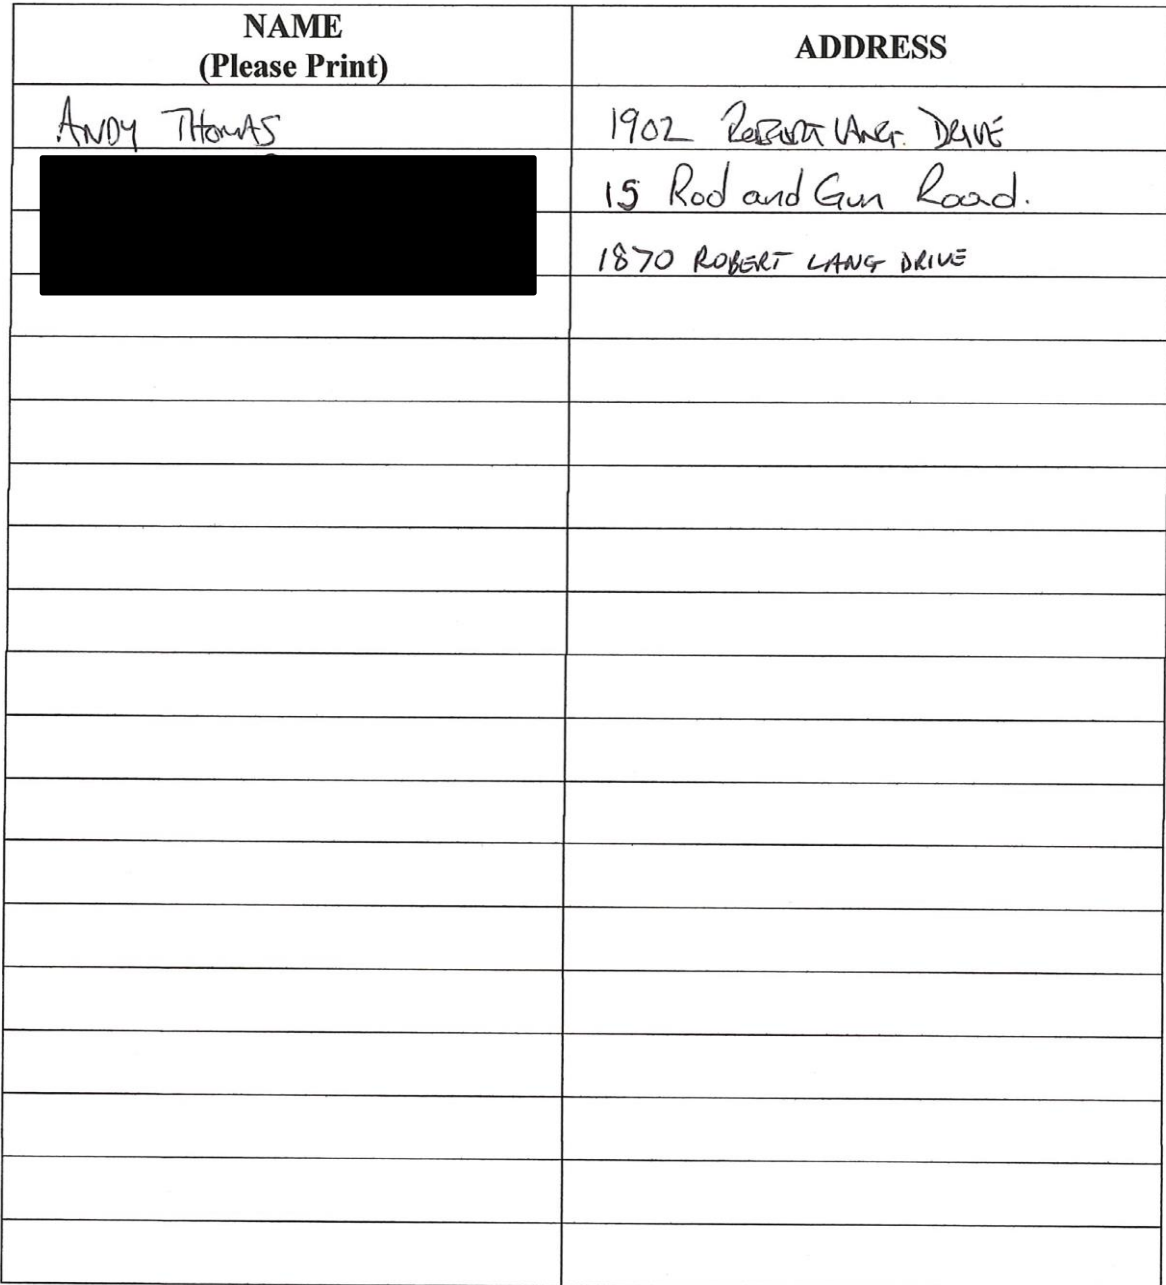 NAME
(Please Print)
ADDRESS
ANDY THOMAS
1902 ROBERT LANG DRIVE
15 Rod and Gun Road.
1870 ROBERT LANG DRIVE